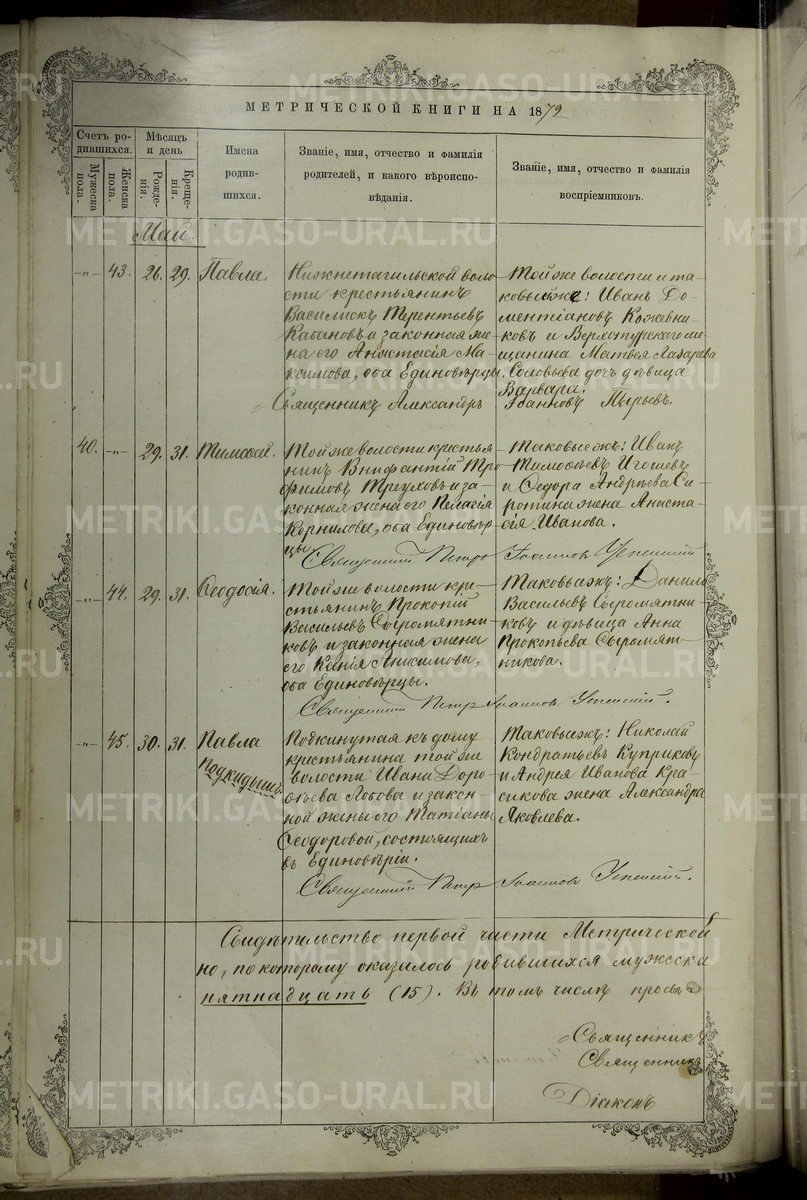 МЕТРИЧЕСКОЙ КНИГИ НА 1879
Счетъ ро-
дившихся.
Мужеска
пола.
Женска
пола.
Мѣсяцъ
и день
Рожде-
нія.
Креще-
нія.
Имена
родив-
шихся.
Званіе, имя, отчество и фамилія
родителей, и какого вѣроиспо-
вѣданія.
Званіе, имя, отчество и фамилія
воспріемниковъ.
Май.
-"- 43. 26. 29. Павла.
Нижнетагильской воло
сти крестьянинъ
Василискъ Терентьевъ
Кабановъ и законная же
на его Анастасія Ма
ксимова, оба Единовѣрцы.
Той же волости и та
ковые же: Иванъ До-
ментіановъ Кожевни-
ковъ и Верхотурскаго ме
щанина Матвея Лазарева
Соловьева дочь дѣвица
Варвара.
Священникъ Александръ Іоанновъ Пырьевъ.
40. -"- 29. 31. Тимофей.
Той же волости крестья
нинъ Внифантій Тро
фимовъ Треуховъ и за-
конная жена его Пелагія
Корнилова, оба Единовѣр
цы
Таковые жъ: Иванъ
Тимофеевъ Игошевъ
и Ѳедора Андрѣева Си
ротина жена Анаста-
сія Иванова.
Священникъ Петръ Іоанновъ Успенскій
-"- 44. 29. 31. Ѳеодосія.
Той же волости кре-
стьянинъ Прокопій
Васильевъ Сыромятни
ковъ и законная жена
его Ксенія Анисимова,
оба Единовѣрцы.
Таковые жъ: Данилъ
Васильевъ Сыромятни
ковъ и дѣвица Анна
Прокопьева Сыромят-
никова.
Священникъ Петръ Іоанновъ Успенскій.
-"- 45. 30. 31. Павла
Подкидышъ
Подкинутая къ дому
крестьянина той же
волости Ивана Доро
ѳеева Лобова и закон
ной жены его Татіаны
Ѳеодоровой, состоящихъ
въ Единовѣріи.
Таковые жъ: Николай
Кондратьевъ Куприковъ
и Андрея Иванова Кра
сикова жена Александра
Яковлева.
Священникъ Петръ Іоанновъ Успенскій.
Свидѣтельство первой части Метрической
но, по которому оказалось родившихся мужеска
пятнадцать (15). Въ томъ числѣ
Священникъ
Священникъ
Діаконъ
METRIKI.GASO-URAL.RU